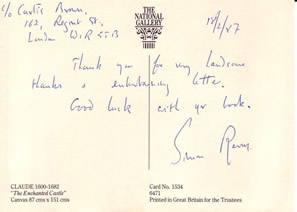 c/o Curtis Brown,
162, Regent St,
London W1R 5TB
THE
NATIONAL
GALLERY
18/2/87
Thank you for very handsome
thanks & entertaining letter.
Good luck with yr book.
Simon
CLAUDE 1600-1682
"The Enchanted Castle"
Canvas 87 cms x 151 cms
Card No. 1534
6471
Printed in Great Britain for the Trustees